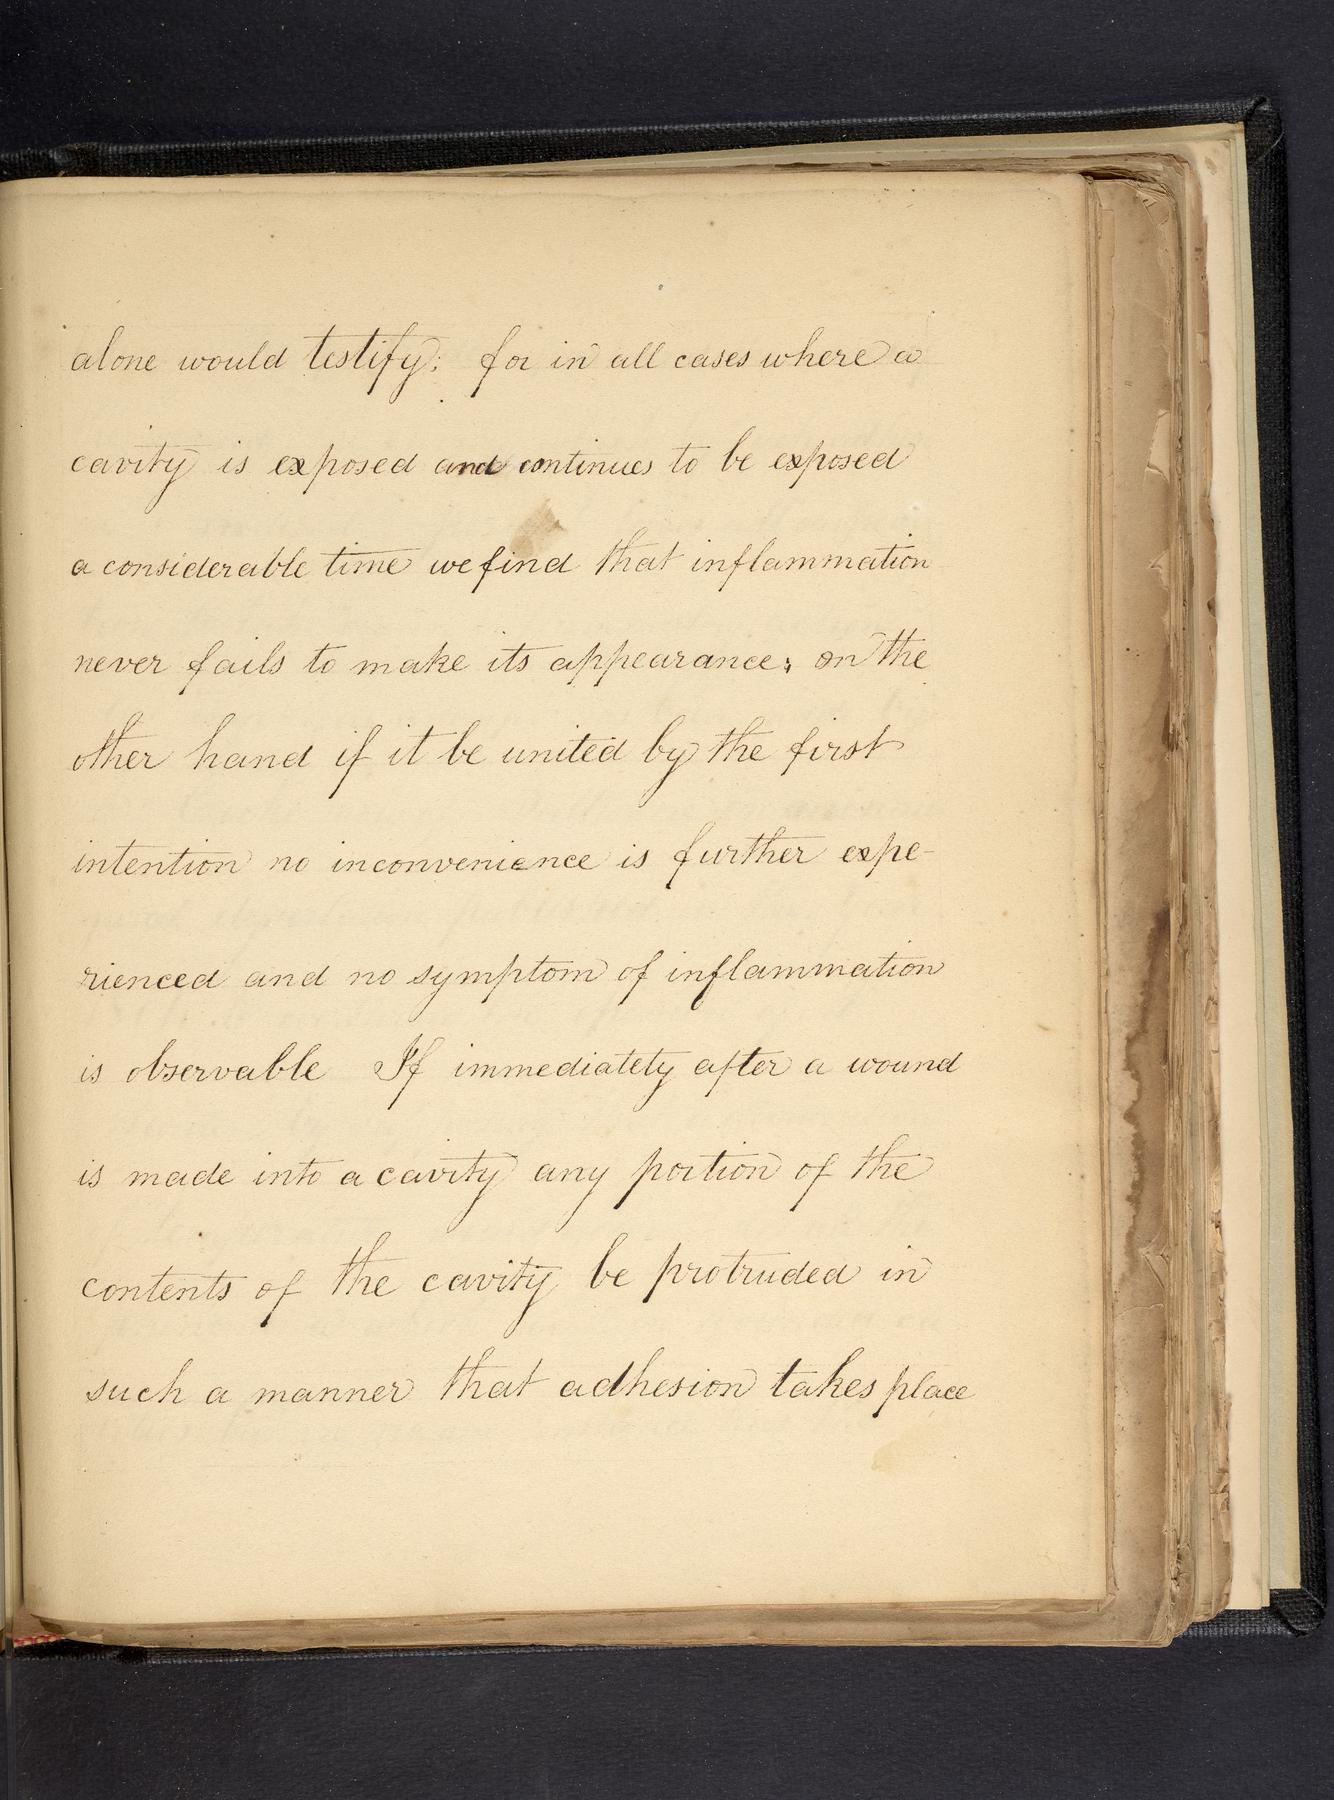 alone would testify; for in all cases where a
cavity is exposed and continues to be exposed
a considerable time we find that inflammation
never fails to make its appearance; on the
other hand if it be united by the first
intention no inconvenience is further expe-
rienced and no symptom of inflammation
is observable If immediately after a wound
is made into a cavity any portion of the
contents of the cavity be protruded in
such a manner that adhesion takes place